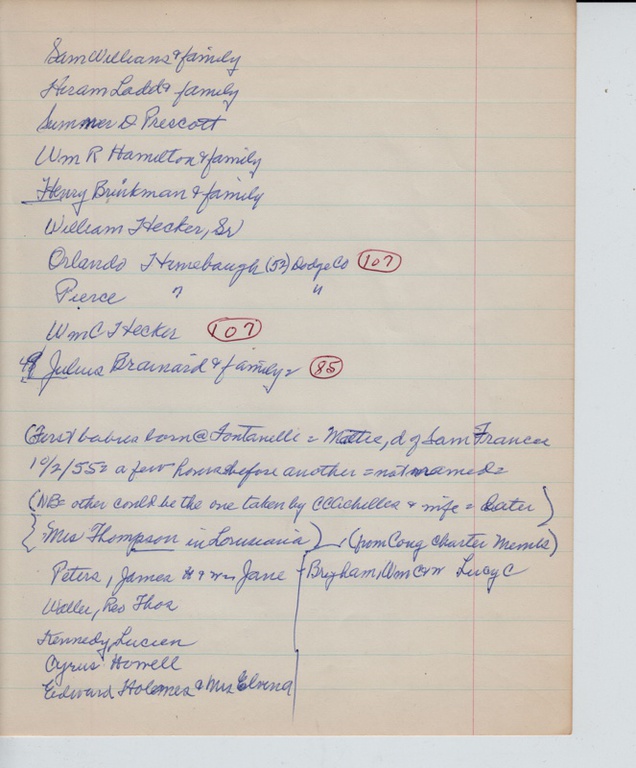 Sam Williams & family
Hiram Ladd & family
Sumner D Prescott
Wm R Hamilton & family
Henry Brinkman & family
William Hecker, Sr
Orlando Himebaugh (52) Dodge Co 107
Pierce " "
Wm C Hecker 107
Julius Brainard & family = 85
(First babies born @ Fontanelle = Mattie, d of Sam Francis
10/2/55 = a few hours before another = not named =
(NB = other could be the one taken by CC Achelles & wife = later
Mrs Thompson in Louisiana) (from Cong Charter Membs)
Peters, James H & w Jane Brigham, Wm C & w Lucy C
Waller, Rev Thos
Kennedy, Lucien
Cyrus Howell
Edward Holmes & Mrs Elvina